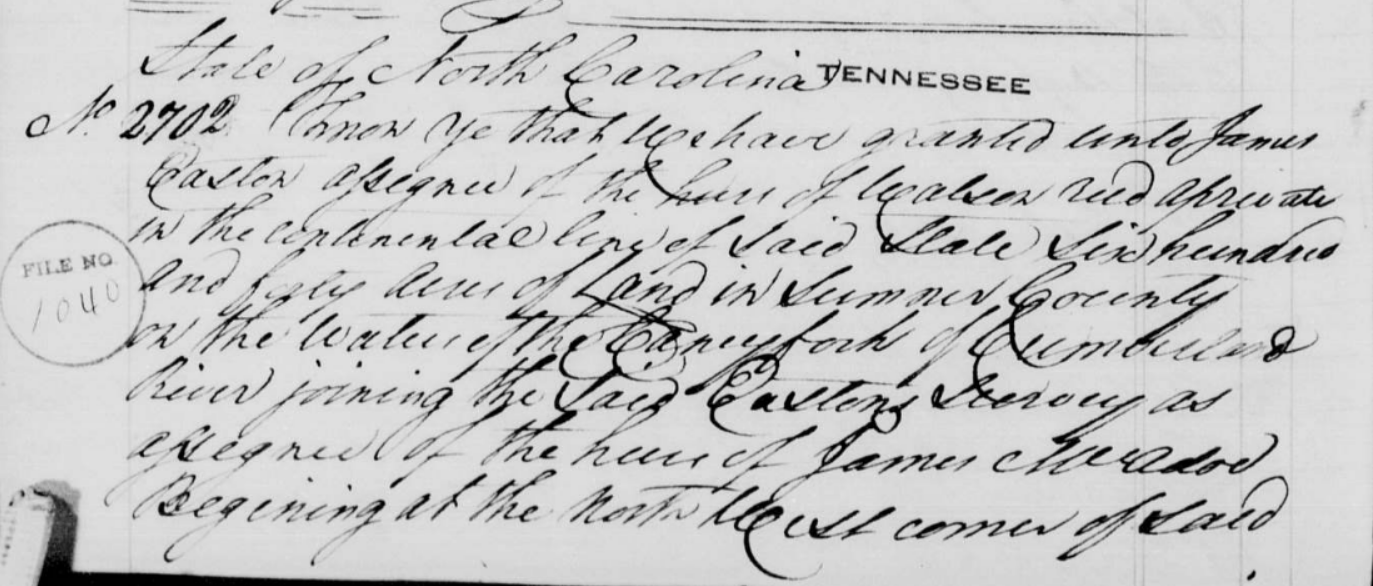 State of North Carolina TENNESSEE
No 2702 Know Ye that We have granted unto James
Easton assignee of the heirs of Watson reed a private
in the continental line of Said State Six hundred
FILE NO.
1040
and forty acres of Land in Sumner County
on the waters of the Caneyfork of Cumberland
River joining the Said Eastons Survey as
assignee of the heirs of James McAdoo
Begining at the North West corner of said